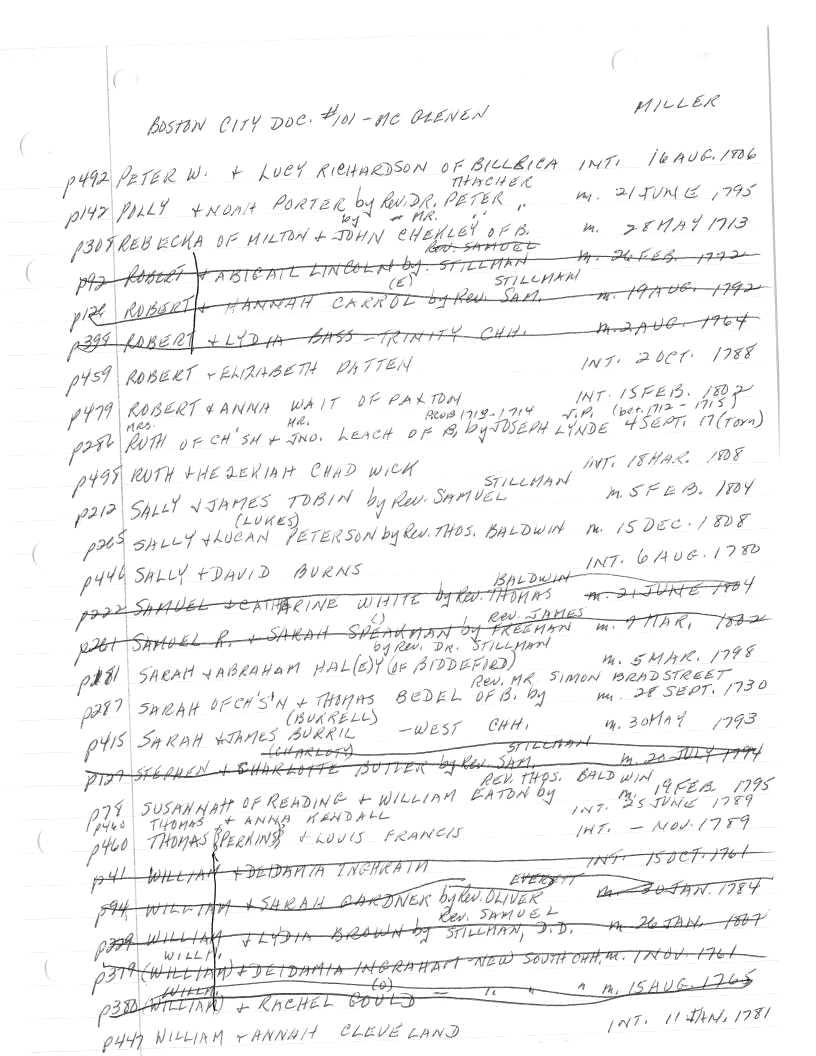 BOSTON CITY DOC. #101 - MC GLENEN MILLER
p492 PETER W. + LUCY RICHARDSON OF BILLRICA INT. 16 AUG. 1806
THACHER
p142 POLLY + NOAH PORTER by Rev. DR. PETER " m. 21 JUNE, 1795
by - MR. "
p308 REBECKA OF MILTON + JOHN CHEKLEY OF B. m. 28 MAY 1713
Rev. SAMUEL
p92 ROBERT + ABIGAIL LINCOLN by. STILLMAN m. 26 FEB. 1772
(E) STILLMAN
p126 ROBERT + HANNAH CARROL by Rev. SAM. m. 19 AUG. 1792
p398 ROBERT + LYDIA BASS - TRINITY CHH. m. 2 AUG. 1764
p459 ROBERT + ELIZABETH PATTEN INT. 2 OCT. 1788
p479 ROBERT + ANNA WAIT OF PAXTON INT. 15 FEB. 1802
MRS. MR. PROB 1713-1714 J.P. (bet. 1712 - 1715)
p286 RUTH OF CH'SH + JNO. LEACH OF B, by JOSEPH LYNDE 4 SEPT. 17 (Torn)
p498 RUTH + HEZEKIAH CHAD WICK INT. 18 MAR. 1808
STILLMAN
p212 SALLY + JAMES TOBIN by Rev. SAMUEL m. 5 FEB. 1804
(LUKES)
p265 SALLY + LUCAN PETERSON by Rev. THOS. BALDWIN m. 15 DEC. 1808
p446 SALLY + DAVID BURNS INT. 6 AUG. 1780
BALDWIN
p222 SAMUEL + CATHARINE WHITE by Rev. THOMAS m. 21 JUNE 1804
() REV. JAMES
p261 SAMUEL R. + SARAH SPEAKMAN by FREEMAN m. 9 MAR. 1802
by Rev. DR. STILLMAN
p181 SARAH + ABRAHAM HAL(E)Y (OF BIDDEFORD) m. 5 MAR. 1798
Rev. MR. SIMON BRADSTREET
p287 SARAH OF CH'S'N + THOMAS BEDEL OF B. by m. 28 SEPT. 1730
(BURRELL)
p415 SARAH + JAMES BURRIL - WEST CHH. m. 30 MAY 1793
(CHARLOTY) STILLMAN
p127 STEPHEN + CHARLOTTE BUTLER by Rev. SAM. m. 20 JULY 1794
REV. THOS. BALDWIN
p78 SUSANNAH OF READING + WILLIAM EATON by m. 19 FEB 1795
p460 THOMAS + ANNA KENDALL INT. 25 JUNE 1789
p460 THOMAS (PERKINS) + LOUIS FRANCIS INT. - NOV. 1789
p41 WILLIAM + DEIDAMIA INGHRAIN INT. 15 OCT. 1761
EVERETT
p94 WILLIAM + SARAH GARDNER by Rev. OLIVER m. 30 JAN. 1784
Rev. SAMUEL
p229 WILLIAM + LYDIA BROWN by STILLMAN, D.D. m. 26 JAN. 1807
WILLM.
p379 (WILLIAM) + DEIDAMIA INGRAHAM - NEW SOUTH CHH. m. 1 NOV. 1761
WILLM. (O)
p380 (WILLIAM) + RACHEL GOULD - " " " m. 15 AUG. 1765
p447 WILLIAM + ANNAH CLEVELAND INT. 11 JAN. 1781